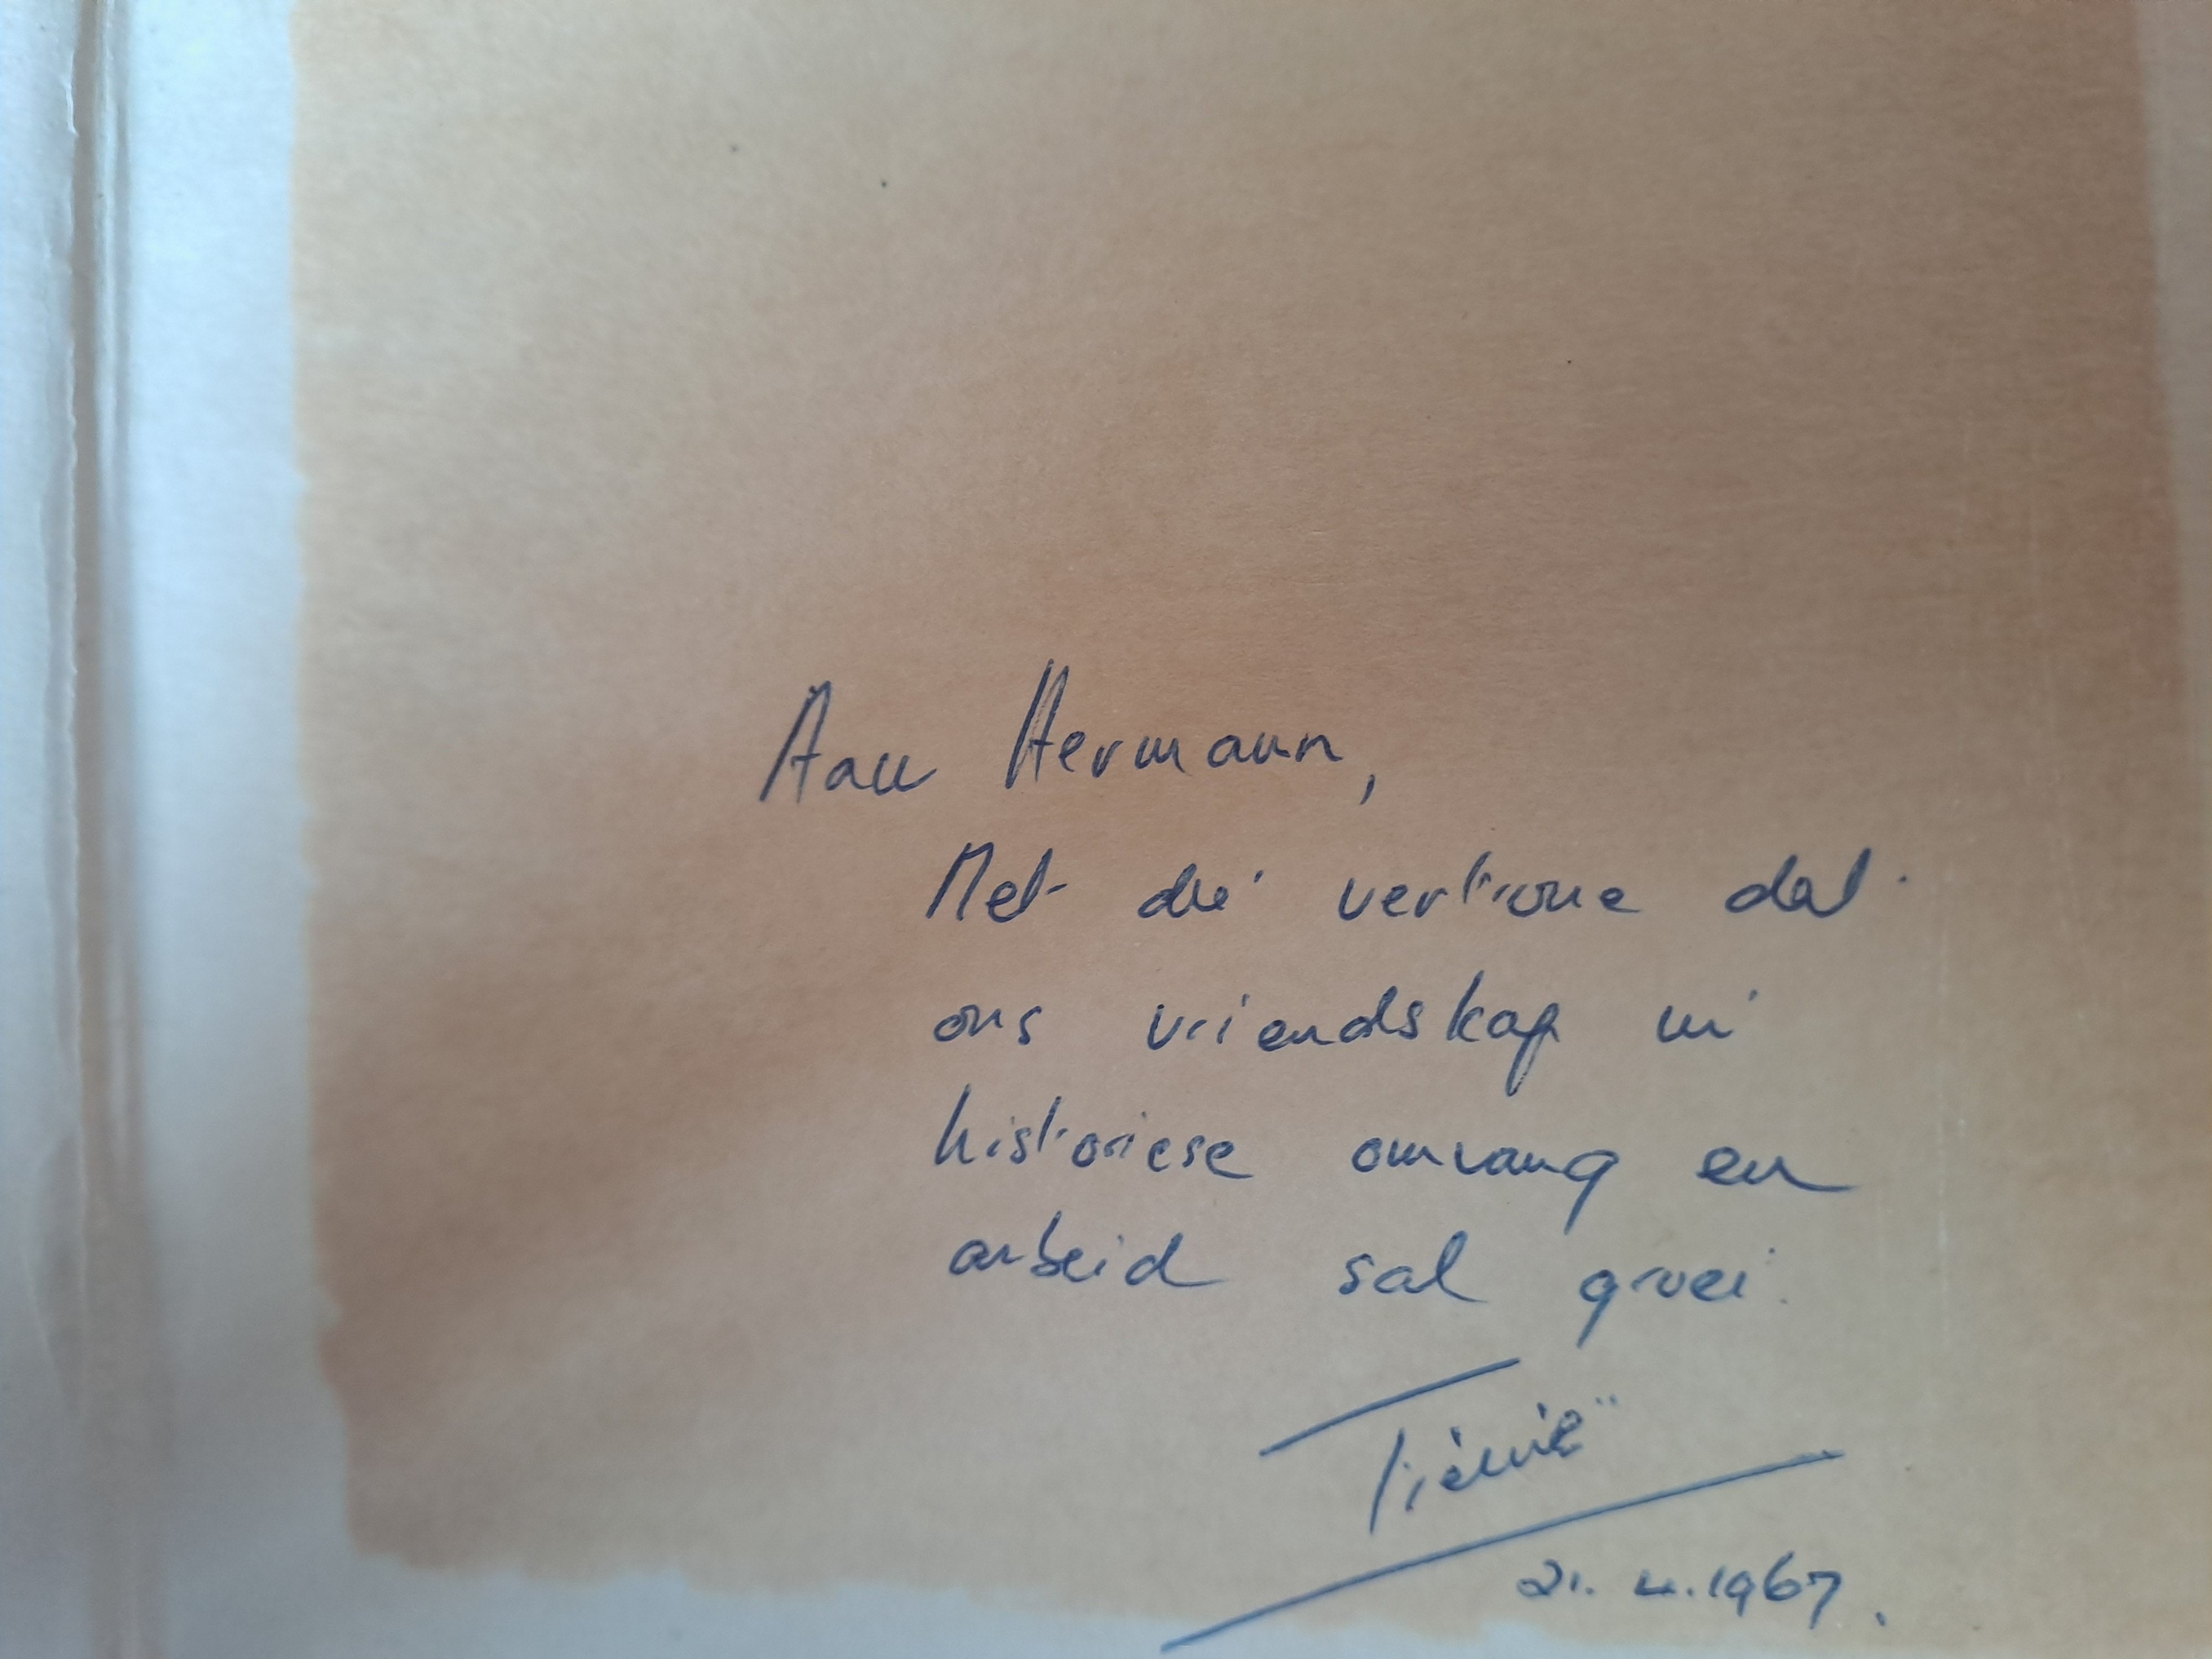 Aan Hermann,
Met die vertroue dat
ons vriendskap in
historiese omvang en
arbeid sal groei.
21.4.1967.